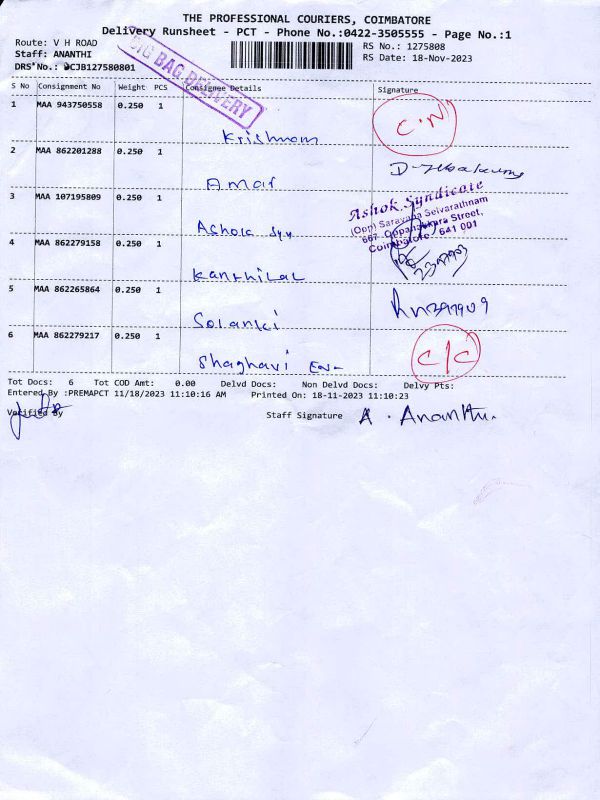 THE PROFESSIONAL COURIERS, COIMBATORE
Delivery Runsheet - PCT - Phone No.:0422-3505555 - Page No.:1
Route: V H ROAD
RS No.: 1275808
Staff: ANANTHI
RS Date: 18-Nov-2023
DRS No.: DCJB127580801
BIG BAG DELIVERY
S No Consignment No Weight PCS Consignee Details Signature
1 MAA 943750558 0.250 1
Krishnam C.N
2 MAA 862201288 0.250 1
Amar
3 MAA 107195809 0.250 1
Ashok Syndicate
(Opp) Saravana Selvarathnam
667, Oppanakkara Street,
Coimbatore - 641 001
Ashok Syy
4 MAA 862279158 0.250 1
Kanthilal
5 MAA 862265864 0.250 1
Solanki
6 MAA 862279217 0.250 1
Shaghavi C/C
Tot Docs: 6 Tot COD Amt: 0.00 Delvd Docs: Non Delvd Docs: Delvy Pts:
Entered By :PREMAPCT 11/18/2023 11:10:16 AM Printed On: 18-11-2023 11:10:23
Verified By Staff Signature A. Ananthi.